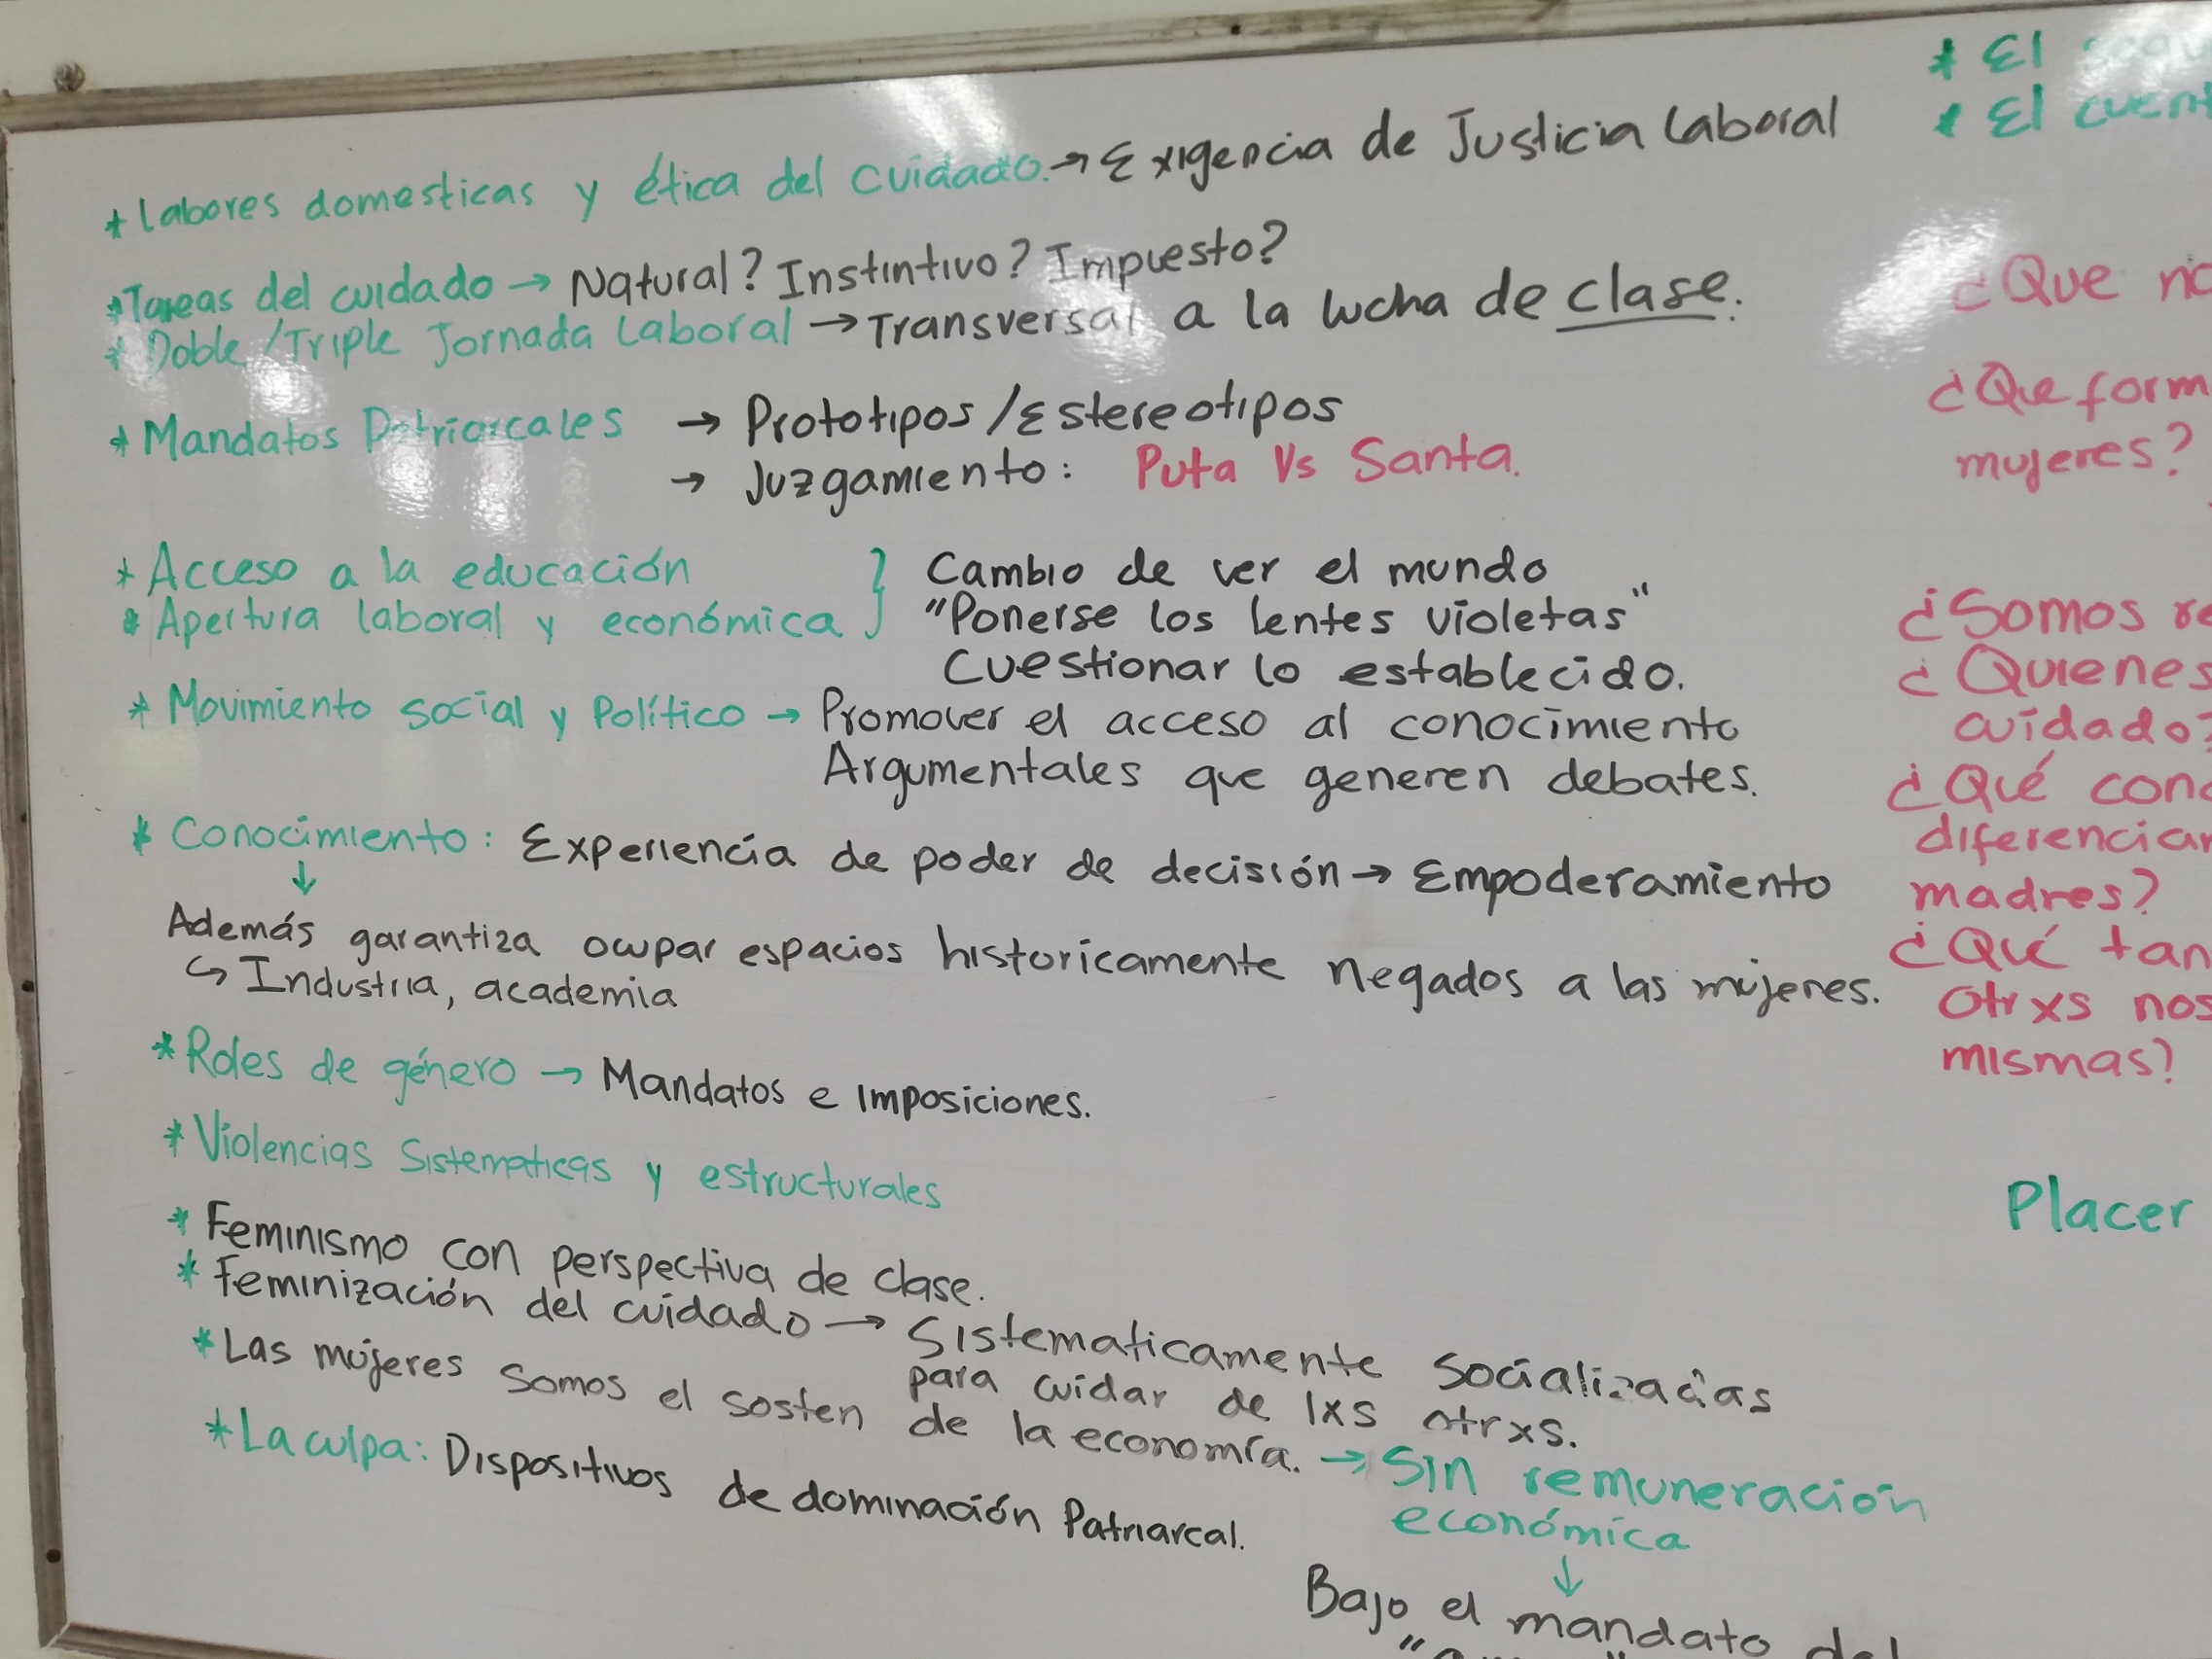 * Labores domesticas y ética del cuidado. → Exigencia de Justicia Laboral
* Tareas del cuidado → Natural? Instintivo? Impuesto?
* Doble/Triple Jornada Laboral → Transversal a la lucha de clase.
* Mandatos Patriarcales → Prototipos/Estereotipos
→ Juzgamiento: Puta Vs Santa.
* Acceso a la educación } Cambio de ver el mundo
* Apertura laboral y económica "Ponerse los lentes violetas"
Cuestionar lo establecido.
* Movimiento social y Político → Promover el acceso al conocimiento
Argumentales que generen debates.
* Conocimiento: Experiencia de poder de decisión → Empoderamiento
↓
Además garantiza ocupar espacios historicamente negados a las mujeres.
↳ Industria, academia
* Roles de género → Mandatos e imposiciones.
* Violencias Sistematicas y estructurales
* Feminismo con perspectiva de clase.
* Feminización del cuidado → Sistematicamente Socializadas
para cuidar de lxs otrxs.
* Las mujeres somos el sosten de la economía. → Sin remuneración
económica
↓
* La culpa: Dispositivos de dominación Patriarcal.
Bajo el mandato del
* El
* El
¿Que
¿Que
mujeres?
¿Somos
¿Quienes
cuidado?
¿Qué
diferenciar
madres?
¿Qué
otrxs nos
mismas?
Placer